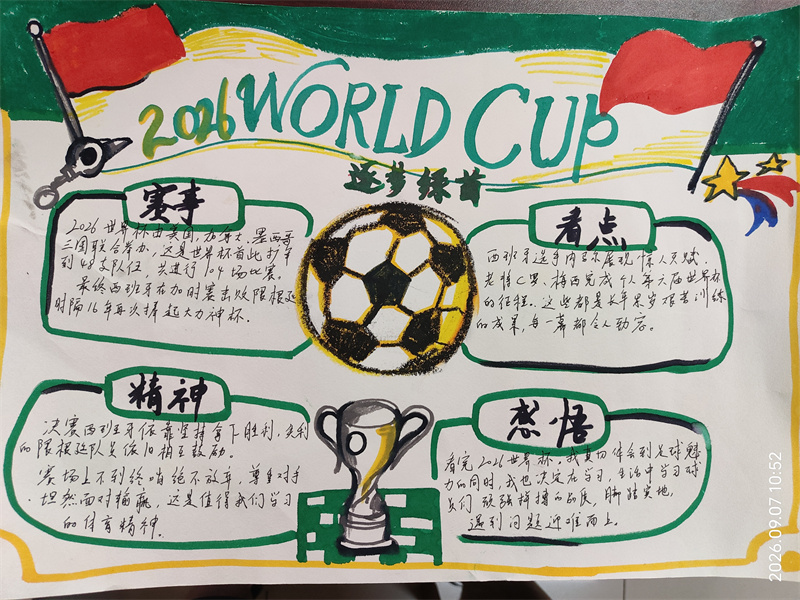 2026 WORLD CUP
逐梦绿茵
赛事
2026世界杯由美国,加拿大、墨西哥
三国联合举办,这是世界杯首次扩军
到48支队伍,共进行104场比赛。
最终西班牙在加时赛击败阿根廷
时隔16年再次捧起大力神杯。
看点
西班牙选手内已尔展现惊人天赋,
老将C罗、梅西完成个人第六届世界杯
的征程、这些都是长年累岁艰苦训练
的成果,每一幕都令人动容。
精神
决赛西班牙依靠坚持拿下胜利,失利
的阿根廷队员依旧相互鼓励。
赛场上不到终哨绝不放弃,尊重对手
坦然面对输赢,这是值得我们学习
的体育精神。
感悟
看完2026世界杯,我真切体会到足球魅
力的同时,我也决定在学习,生活中学习球
员们顽强拼搏的态度,脚踏实地,
遇到问题迎难而上。
2026.09.07 10:52